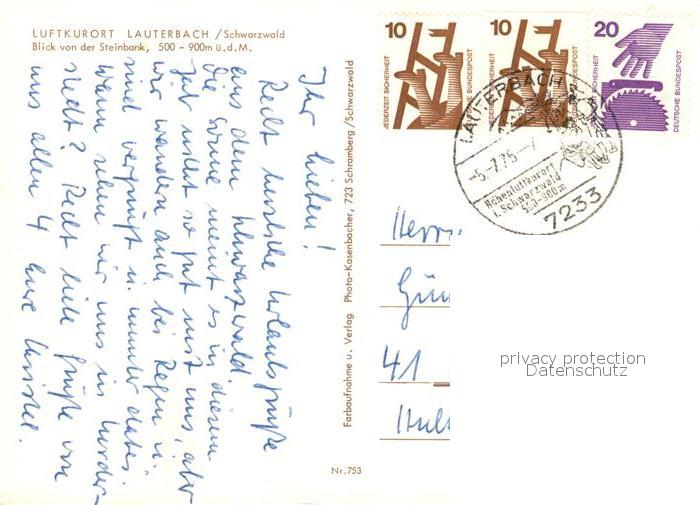 LUFTKURORT LAUTERBACH / Schwarzwald
Blick von der Steinbank, 500 - 900m ü.d.M.
Ihr lieben!
Recht herzliche Urlaubsgrüße
aus dem Schwarzwald.
Die Sonne meint es in diesem
Jahr nicht so gut mit uns, aber
wir wandern auch bei Regen u.
sind vergnügt u. munter dabei.
Wann sehen wir uns in Lorder-
stedt? Recht liebe Grüße von
uns allen 4 Eure Christel.
Farbaufnahme u. Verlag Photo-Kasenbacher, 723 Schramberg/Schwarzwald
Nr. 753
10
JEDERZEIT SICHERHEIT
DEUTSCHE BUNDESPOST
10
JEDERZEIT SICHERHEIT
DEUTSCHE BUNDESPOST
20
JEDERZEIT SICHERHEIT
DEUTSCHE BUNDESPOST
LAUTERBACH
-5.-7.75-
Höhenluftkurort
i. Schwarzwald
500-900m
7233
Herrn
Gün
41
privacy protection
Datenschutz